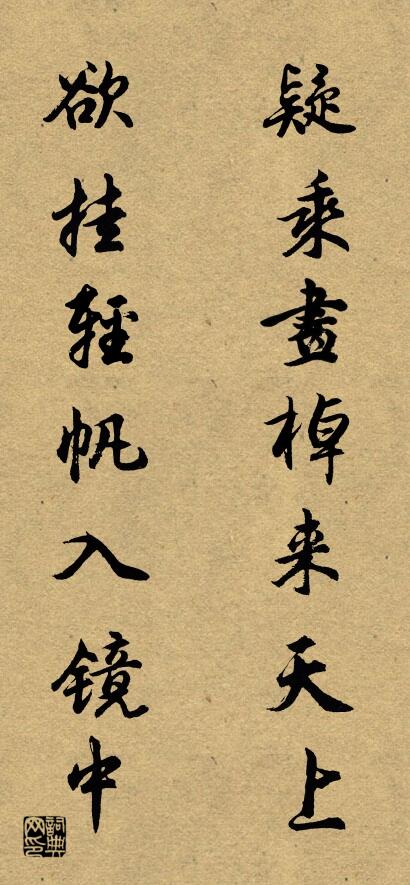 疑乘畫棹来天上
欲挂輕帆入镜中
詞典网印